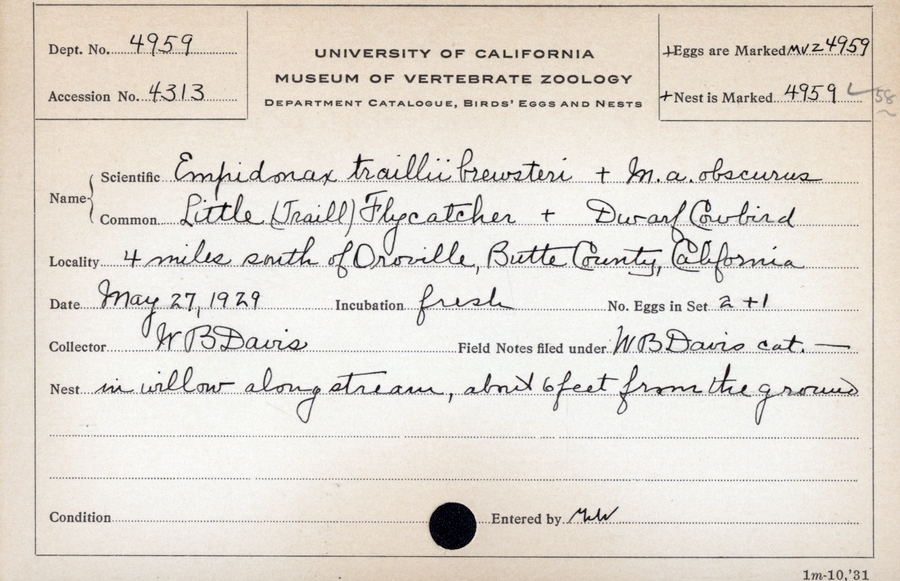 Dept. No. 4959
Accession No. 4313
UNIVERSITY OF CALIFORNIA
MUSEUM OF VERTEBRATE ZOOLOGY
DEPARTMENT CATALOGUE, BIRDS' EGGS AND NESTS
+Eggs are Marked MVZ 4959
+Nest is Marked 4959 ✓ 58
Name { Scientific Empidonax traillii brewsteri + M. a. obscurus
Common Little (Traill) Flycatcher + Dwarf Cowbird
Locality 4 miles south of Oroville, Butte County, California
Date May 27, 1929 Incubation fresh No. Eggs in Set 2 + 1
Collector W B Davis Field Notes filed under W B Davis cat. —
Nest in willow along stream, about 6 feet from the ground
Condition Entered by
1m-10,'31